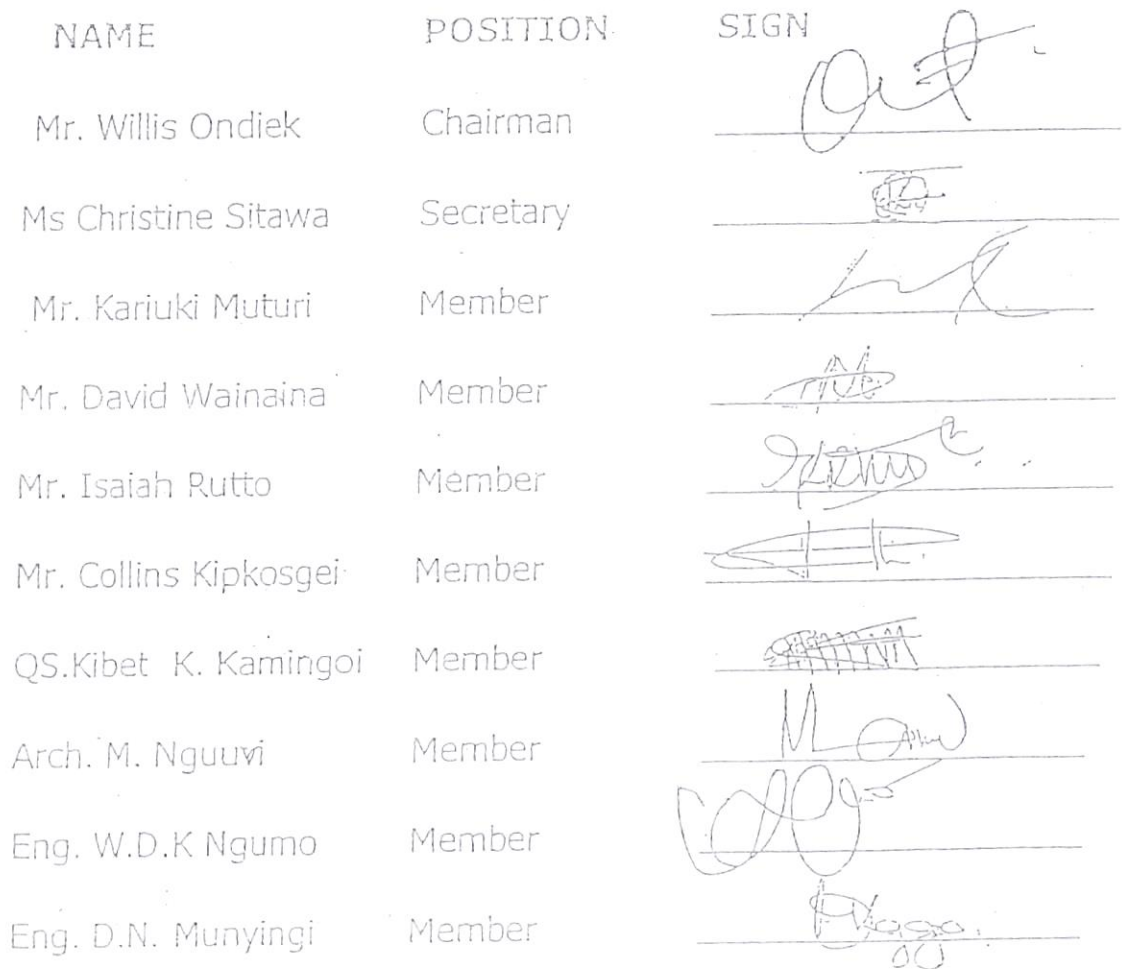 NAME POSITION SIGN
Mr. Willis Ondiek Chairman
Ms Christine Sitawa Secretary
Mr. Kariuki Muturi Member
Mr. David Wainaina Member
Mr. Isaiah Rutto Member
Mr. Collins Kipkosgei Member
QS.Kibet K. Kamingoi Member
Arch. M. Nguuvi Member
Eng. W.D.K Ngumo Member
Eng. D.N. Munyingi Member